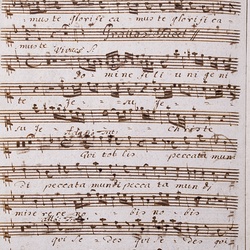 mus te glorifica mus te glorifica
Gratias Tacet
mus te
Vivace S.
Domine fili unigeni
te Je su
su Je Christe
Qui tollis peccata mun
di peccata mundi peccata mundi
miserere no bis no bis
qui sedes qui sedes qui